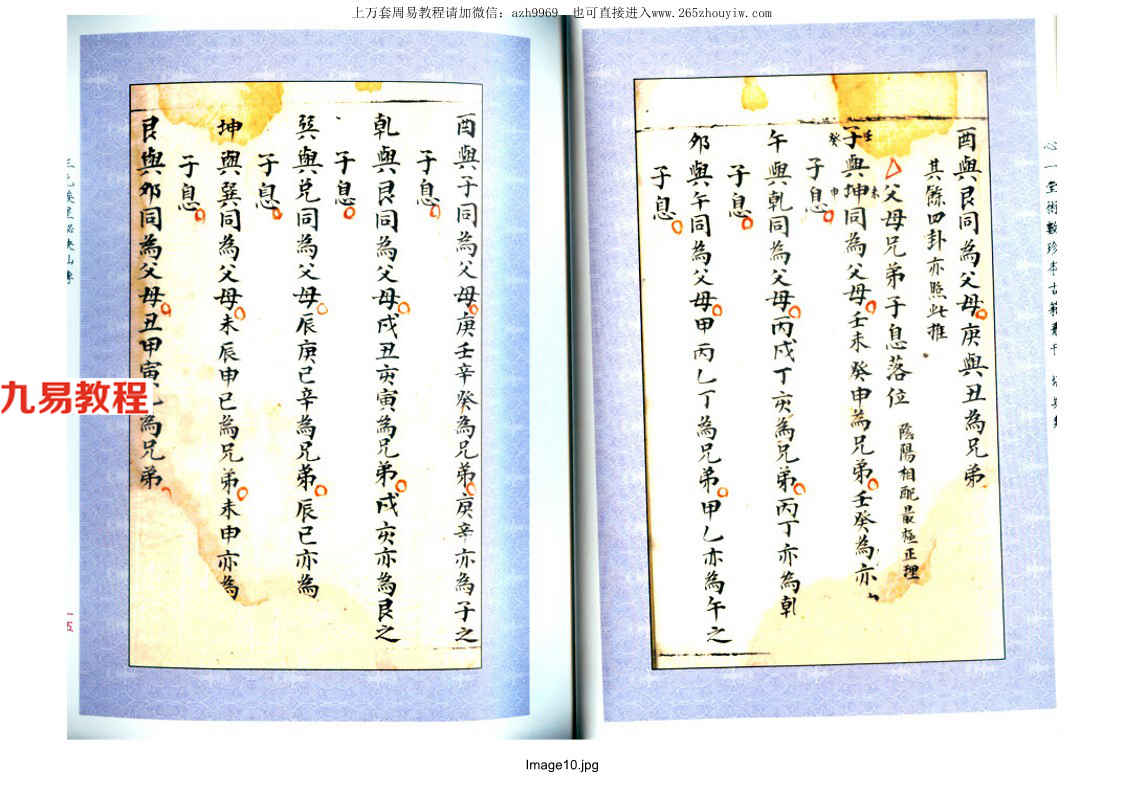 上万套周易教程请加微信：azh9969 也可直接进入www.265zhouyiw.com
心一堂術數珍本古籍叢刊
酉與艮同為父母庚與丑為兄弟
其餘四卦亦照此推
父母兄弟子息落位 陰陽相配最極正理
子與坤同為父母壬未癸申為兄弟壬癸為亦
壬
癸
未
申
子息
午與乹同為父母丙戍丁亥為兄弟丙丁亦為乹
子息
夘與午同為父母甲丙乙丁為兄弟甲乙亦為午之
子息
酉與子同為父母庚壬辛癸為兄弟庚辛亦為子之
子息
乹與艮同為父母戍丑亥寅為兄弟戍亥亦為艮之
子息
巽與兌同為父母辰庚巳辛為兄弟辰巳亦為
子息
坤與巽同為父母未辰申巳為兄弟未申亦為
子息
艮與夘同為父母丑甲寅為兄弟
一五
九易教程
Image10.jpg